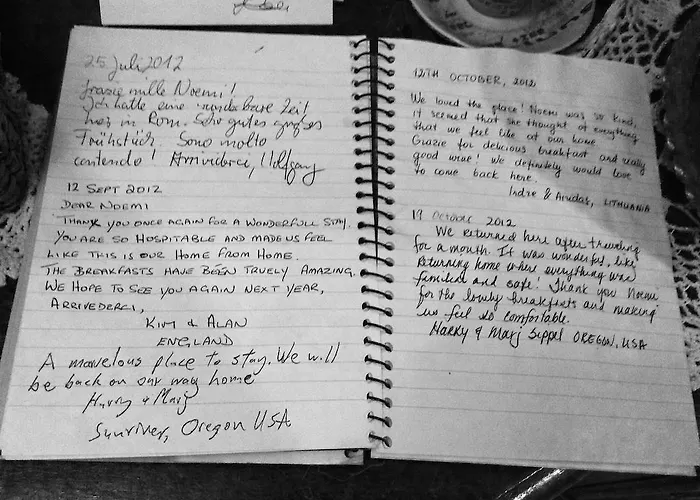 25 Juli 2012
Grazie mille Noemi!
Ich hatte eine wunderbare Zeit
hier in Rom. Sehr gutes großes
Frühstück. Sono molto
contendo! Arrivideci, Wolfgang
12 SEPT 2012
DEAR NOEMI
THANK YOU ONCE AGAIN FOR A WONDERFULL STAY.
YOU ARE SO HOSPITABLE AND MADE US FEEL
LIKE THIS IS OUR HOME FROM HOME.
THE BREAKFASTS HAVE BEEN TRUELY AMAZING.
WE HOPE TO SEE YOU AGAIN NEXT YEAR,
ARRIVEDERCI,
KIM & ALAN
ENGLAND
A marvelous place to stay. We will
be back on our way home
Harry & Marj
Sunriver, Oregon USA
12TH OCTOBER, 2012
We loved the place! Noemi was so kind,
it seemed that she thought of everything
that we feel like at our home
Grazie for delicious breakfast and really
good wine! We definitely would love
to come back here.
Indre & Arudas, LITHUANIA
19 October 2012
We returned here after traveling
for a month. It was wonderful, like
returning home where everything was
familiar and safe! Thank you Noemi
for the lovely breakfasts and making
us feel so comfortable.
Harry & Marj Sippel OREGON, USA